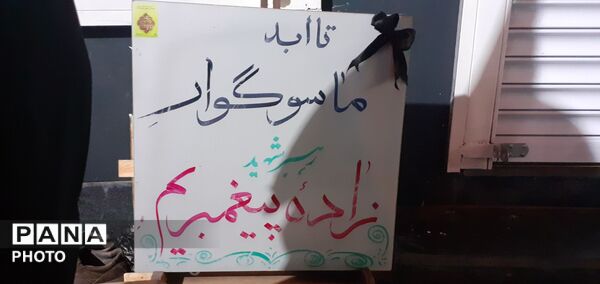 تا ابد
ما سوگوارِ
رهبر شهید
زادهٔ پیغمبریم
PANA
PHOTO